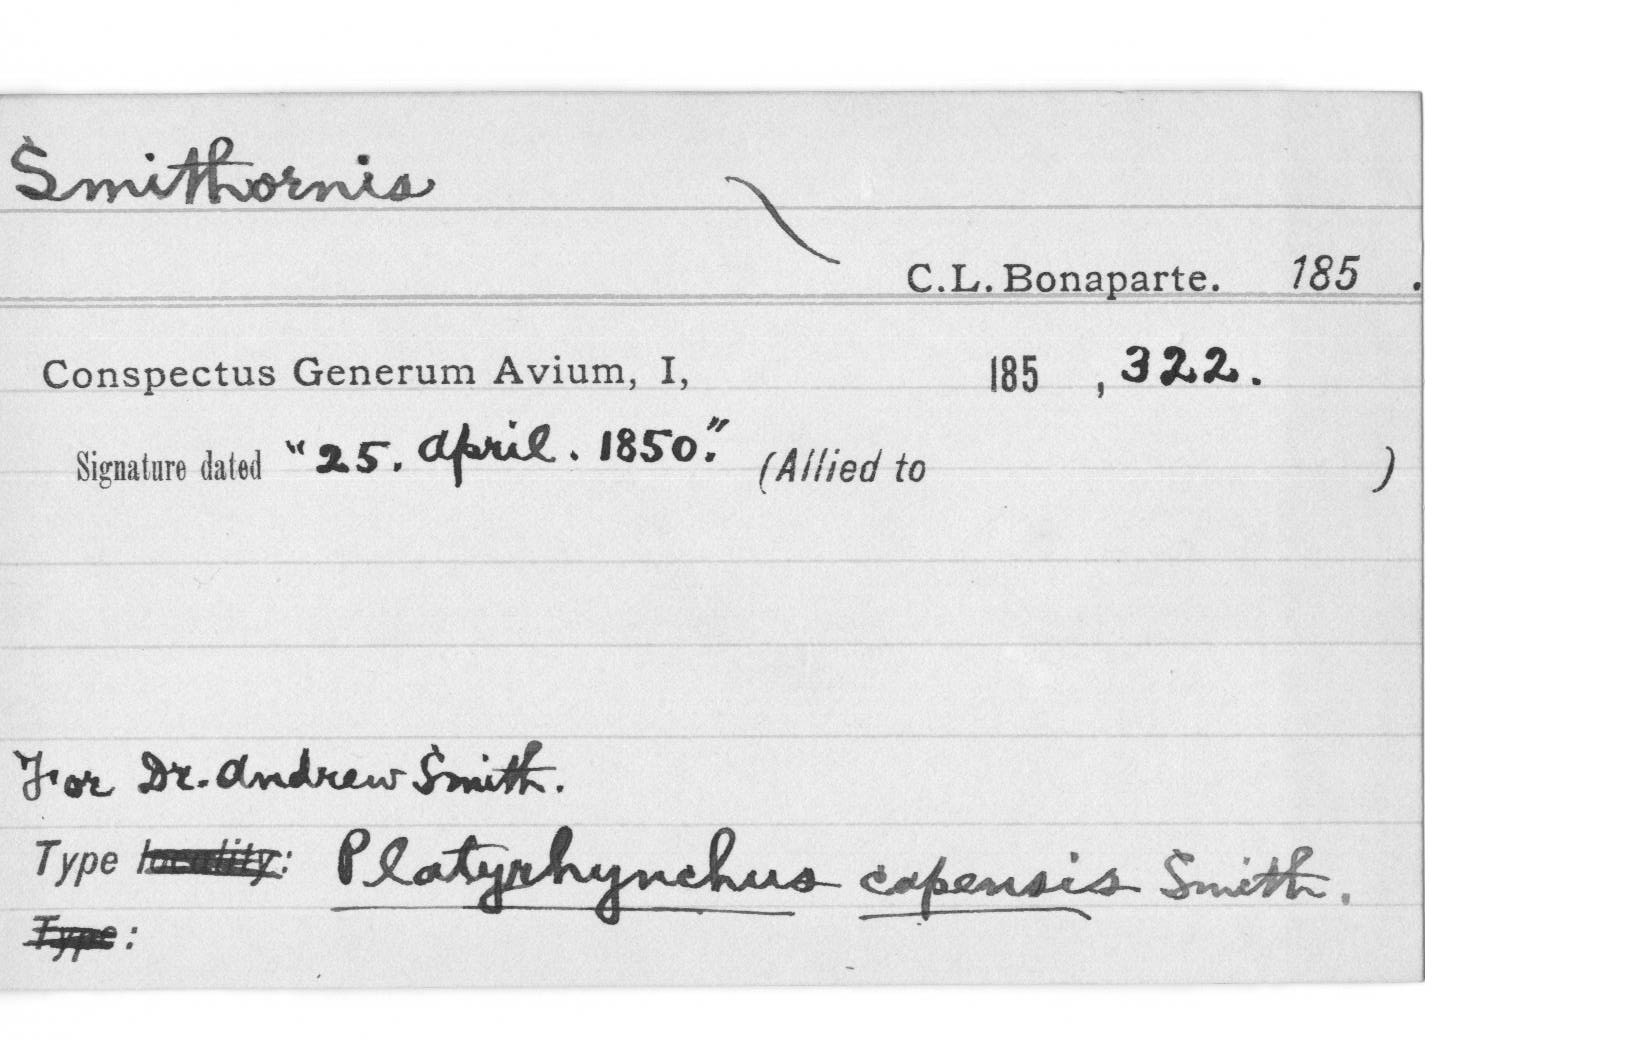 Smithornis
C.L. Bonaparte. 185 .
Conspectus Generum Avium, I, 185 , 322.
Signature dated "25. April. 1850." (Allied to )
For Dr. Andrew Smith.
Type locality: Platyrhynchus capensis Smith.
Type: